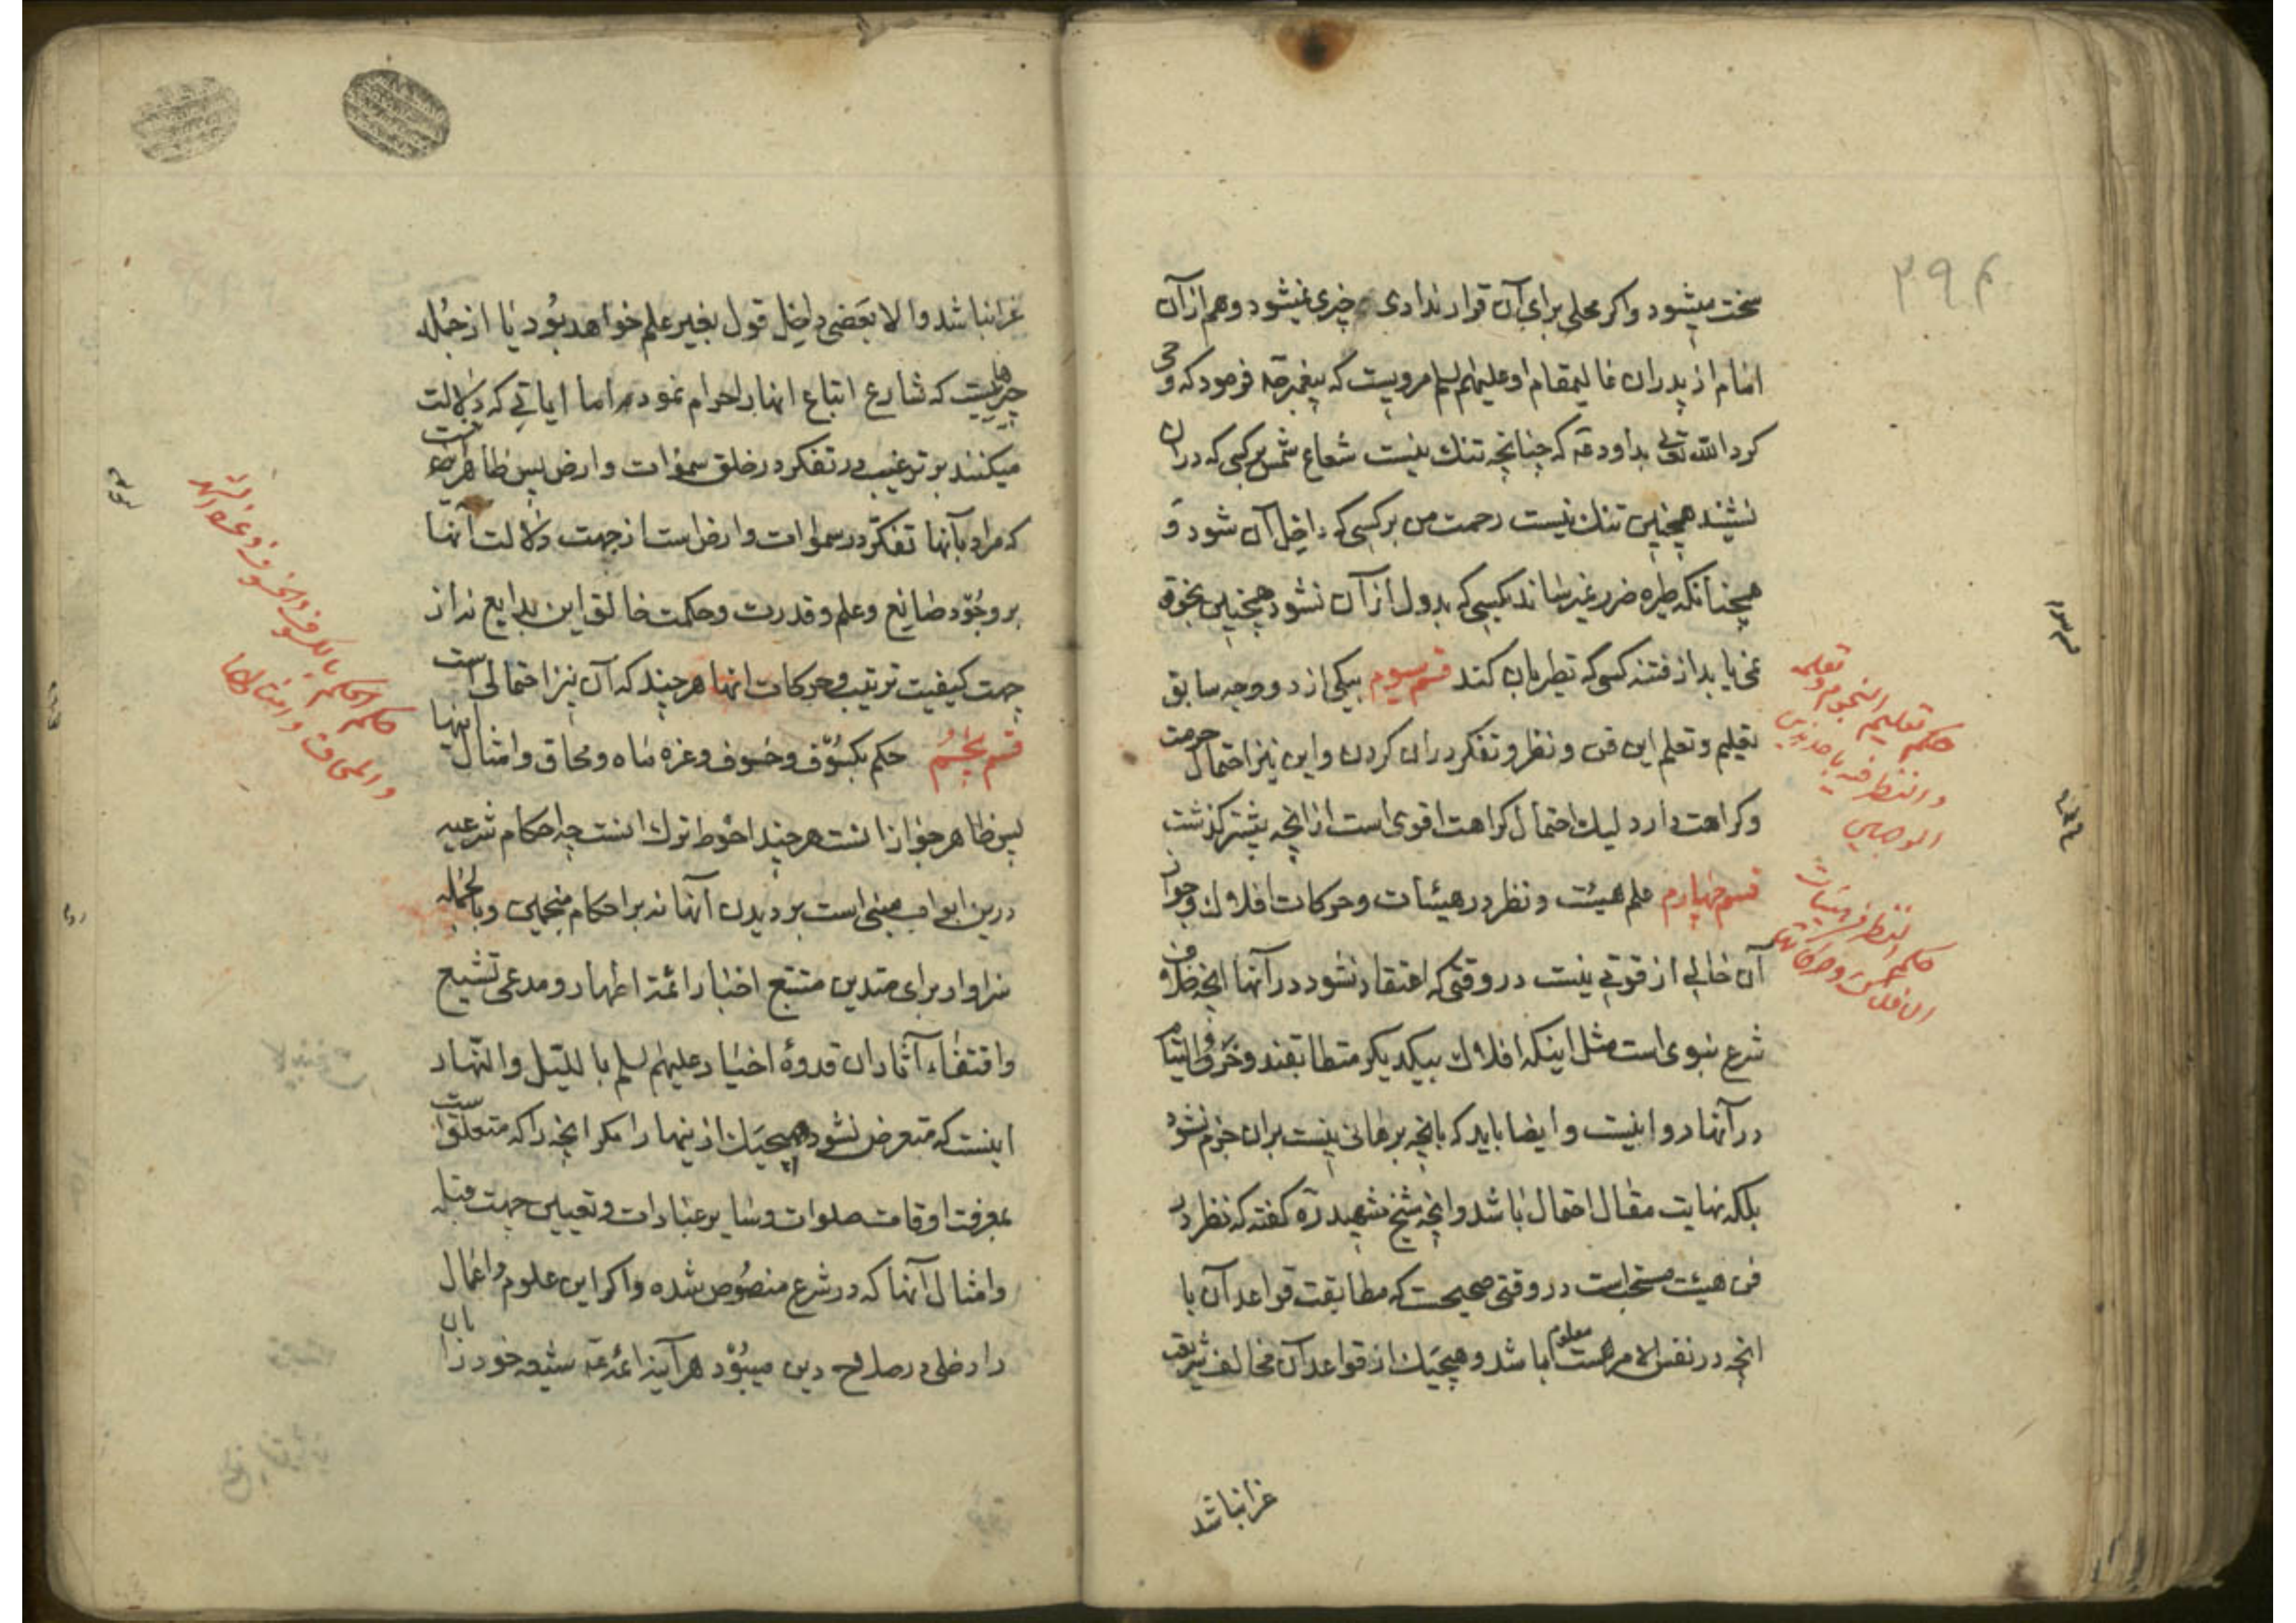 سخت میشود واکر محلی برای آن قرار ندادی چیزی نمیشود وهم از آن
امام از پدران عالیمقام او علیهم السلم مرویست که پیغمبر صه فرمود که وحی
کرد الله تعالی بداود عه که چنانچه تنک نیست شعاع شمس بر کسی که در ان
نشیند همچنین تنک نیست رحمت من بر کسی که داخل آن شود و
همچنانکه طیره ضرر نمیرساند بکسی که بدول از آن نشود همچنین نجوة
نمی یابد از فتنه کسی که تطیر بان کند قسم سیوم بیکی از دو وجه سابق
تعلیم وتعلم این فن ونظر وتفکر دران کردن واین نیز احتمال حرمت
وکراهت دارد لیک احتمال کراهت اقوی است از انچه پیشتر کذشت
قسم چهارم علم هیئت ونظر در هیئات وحرکات افلاک وجواز
آن خالی از قوتی نیست در وقتی که اعتقاد نشود در آنها انچه خلاف
شرع نبوی است مثل اینکه افلاک بیکدیکر متطابقند وخرق والتیام
در آنها روا نیست وایضا باید که بانچه برهانی نیست بران جزم نشود
بلکه نهایت مقال احتمال باشد وانچه شیخ شهید ره کفته که نظر در
فن هیئت مستحب است در وقتی صحیحست که مطابقت قواعد آن با
انچه در نفس الامر است معلوم باشد وهیچیک از قواعد آن مخالف شریعت
غرا نباشد
حکم تعلیم النجوم وتعلمه
والنظر فیه باحد
الوجهین
حکم النظر فی هیئات
الافلاک وحرکاتها
۳۹۴
غرا نباشد والا بعضی داخل قول بغیر علم خواهد بود یا از جمله
چیزهاییست که شارع اتباع انها را حرام نموده اما ایاتی که دلالت
میکنند بر ترغیب در تفکر در خلق سموات وارض پس ظاهر انست
که مراد بآنها تفکر در سموات وارض است از جهت دلالت آنها
بر وجود صانع وعلم وقدرت وحکمت خالق این بدایع نه از
جهت کیفیت ترتیب وحرکات انها هر چند که آن نیز احتمالی است
قسم پنجم حکم بکسوف وخسوف وغره ماه ومحاق وامثال اینها
پس ظاهر جواز انست هر چند احوط ترک انست چه احکام شرعیه
درین ابواب مبنی است بر دیدن آنها نه بر احکام منجمین وبالجمله
سزاوار برای متدین متتبع اخبار ائمه اطهار ومدعی تشیع
واقتفاء آثار ان قدوهٔ اخیار علیهم السلم باللیل والنهار
اینست که متعرض نشود بهیچیک از ینها را مکر انچه را که متعلق است
بمعرفت اوقات صلوات وسایر عبادات وتعیین جهت قبله
وامثال آنها که در شرع منصوص شده واکر این علوم واعمال
را دخلی در صلاح دین میبود هر آینه ائمه عه شیعه خود را بان
حکم الحکم بالکسوف والخسوف وغرة الشهر
والمحاق وامثالها